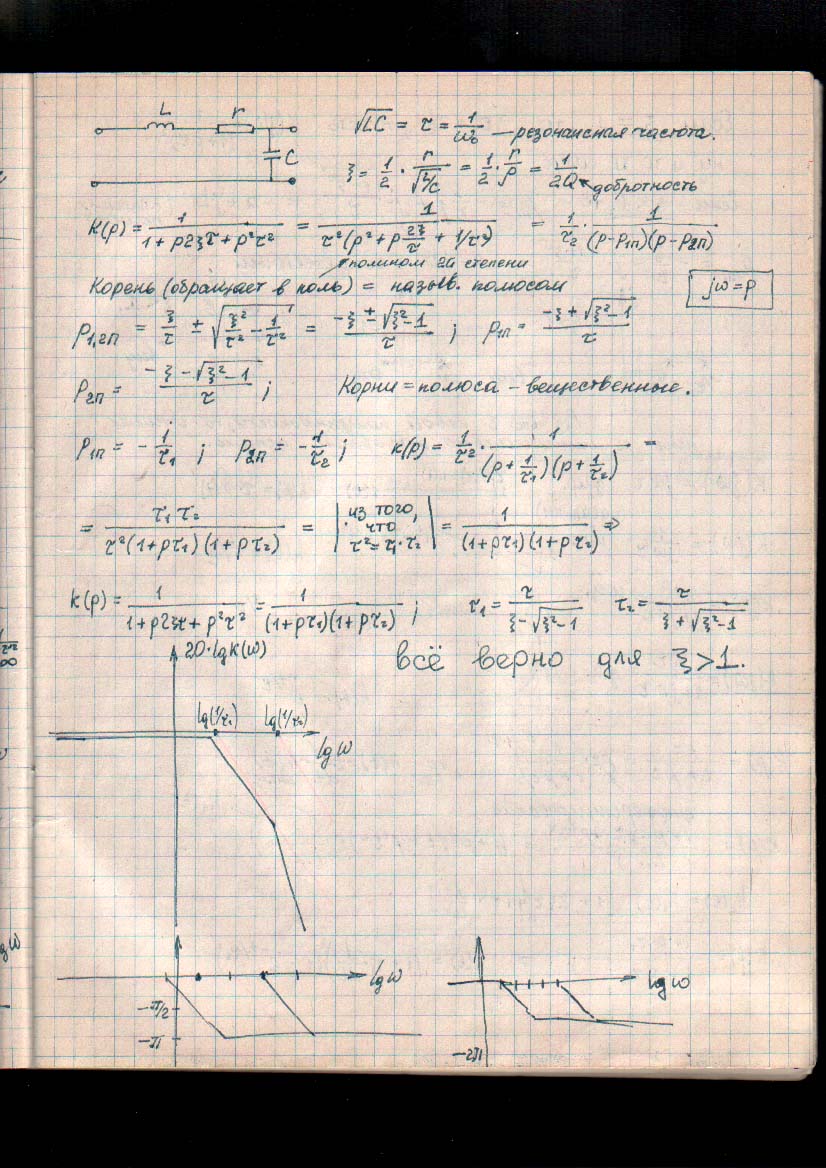 L r
√LC = τ = 1/ω₀ — резонансная частота.
C
ξ = 1/2 · r/√(L/C) = 1/2 · r/ρ = 1/2Q добротность
K(p) = 1/(1+p2ξτ+p²τ²) = 1/(τ²(p²+p 2ξ/τ + 1/τ²)) = 1/τ² · 1/((p-p₁п)(p-p₂п))
полином 2й степени
Корень (обращает в ноль) = назыв. полюсом
jω = p
p₁,₂п = ξ/τ ± √(ξ²/τ² - 1/τ²) = (-ξ ± √(ξ²-1))/τ ; p₁п = (-ξ + √(ξ²-1))/τ
p₂п = (-ξ - √(ξ²-1))/τ ; Корни = полюса - вещественные.
p₁п = - 1/τ₁ ; p₂п = - 1/τ₂ ; k(p) = 1/τ² · 1/((p + 1/τ₁)(p + 1/τ₂)) =
= τ₁τ₂/(τ²(1+pτ₁)(1+pτ₂)) = | из того, что τ² = τ₁·τ₂ | = 1/((1+pτ₁)(1+pτ₂)) ⇒
k(p) = 1/(1+p2ξτ+p²τ²) = 1/((1+pτ₁)(1+pτ₂)) ; τ₁ = τ/(ξ-√(ξ²-1)) τ₂ = τ/(ξ+√(ξ²-1))
20·lg k(ω)
всё верно для ξ>1.
lg(1/τ₁) lg(1/τ₂)
lg ω
lg ω
lg ω
-π/2
-π
-2π